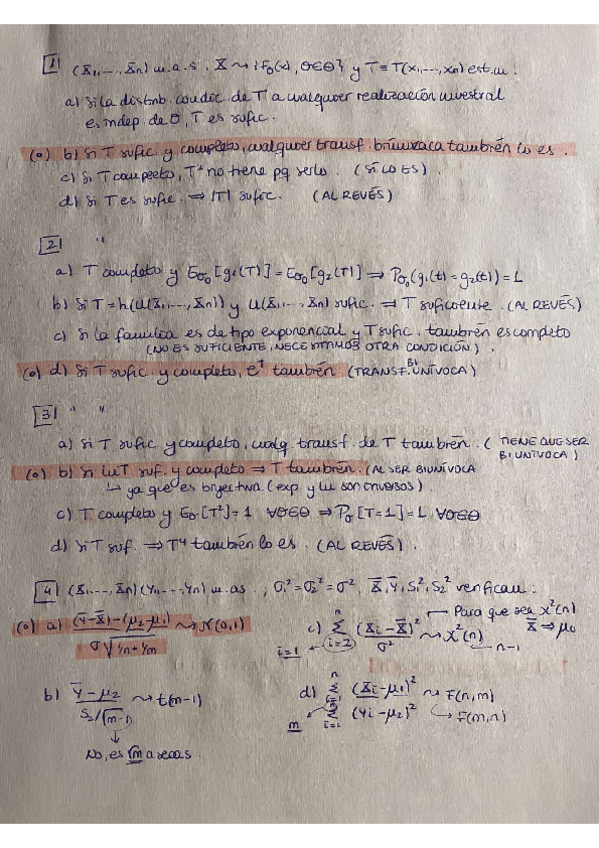 1) (X1, ..., Xn) m.a.s. X ⇝ {fθ(x), θ∈Θ} y T = T(X1, ..., Xn) est.m.
a) Si la distrib. condic. de T a cualquier realización muestral
es indep. de θ, T es sufic.
(o) b) Si T sufic. y completo, cualquier transf. biunívoca también lo es.
c) Si T completo, T² no tiene pq serlo. (SÍ LO ES).
d) Si T es sufic. ⇒ |T| sufic. (AL REVÉS)
2) "
a) T completo y Eθ₀[g₁(T)] = Eθ₀[g₂(T)] ⇒ Pθ₀(g₁(t) = g₂(t)) = 1
b) Si T = h(U(X1, ..., Xn)) y U(X1, ..., Xn) sufic. ⇒ T suficiente. (AL REVÉS)
c) Si la familia es de tipo exponencial y T sufic. también es completo
(NO ES SUFICIENTE, NECESITAMOS OTRA CONDICIÓN).
(o) d) Si T sufic. y completo, e^T también (TRANSF. BIUNÍVOCA)
3) " "
a) Si T sufic y completo, cualq. transf. de T también. (TIENE QUE SER
BIUNÍVOCA)
(o) b) Si lnT suf. y completo ⇒ T también. (AL SER BIUNÍVOCA
↳ ya que es biyectiva. (exp. y ln son inversos).
c) T completo y Eθ[T²] = 1 ∀θ∈Θ ⇒ Pθ[T=1] = 1 ∀θ∈Θ
d) Si T suf. ⇒ T⁴ también lo es. (AL REVÉS).
4) (X1, ..., Xn) (Y1, ..., Yn) m.as. , σ₁² = σ₂² = σ², X̄, Ȳ, S₁², S₂² verifican:
(o) a) (Ȳ-X̄)-(μ₂-μ₁) / σ√(1/n + 1/m) ⇝ N(0,1)
c) Σ (i=2) n (Xi - X̄)² / σ² ⇝ χ²(n)
i=1
Para que sea χ²(n)
X̄ ⇒ μ₀
n-1
b) Ȳ - μ₂ / S₂/√(m-1) ⇝ t(m-1)
No, es √m a secas.
d) Σ (i=1) n (Xi - μ₁)² / Σ (i=1) (Yi - μ₂)² ⇝ F(n,m)
m
↳ F(m,n)